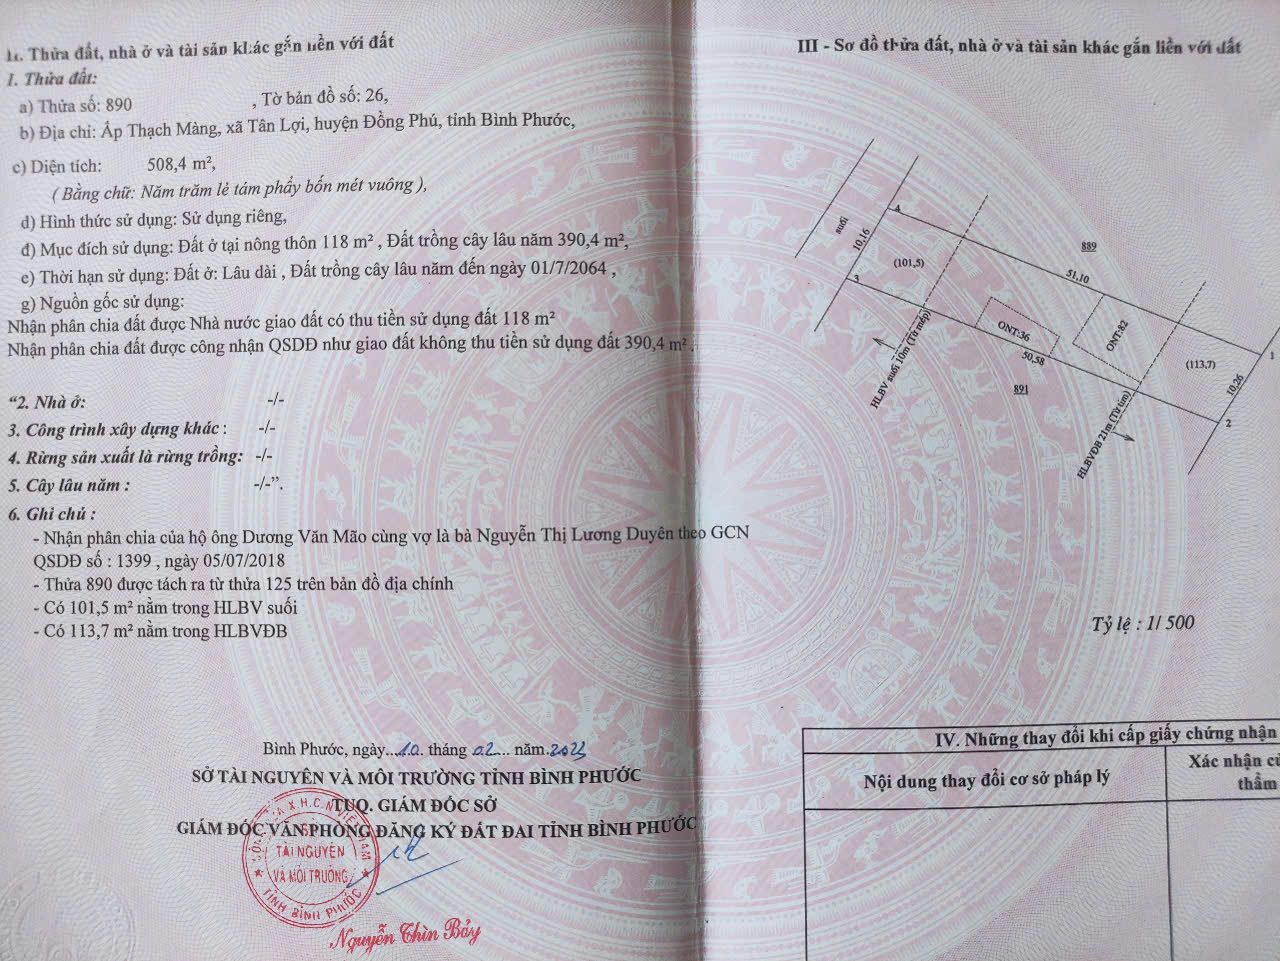 II. Thửa đất, nhà ở và tài sản khác gắn liền với đất
1. Thửa đất:
a) Thửa số: 890 , Tờ bản đồ số: 26,
b) Địa chỉ: Ấp Thạch Màng, xã Tân Lợi, huyện Đồng Phú, tỉnh Bình Phước,
c) Diện tích: 508,4 m²,
( Bằng chữ: Năm trăm lẻ tám phẩy bốn mét vuông ),
d) Hình thức sử dụng: Sử dụng riêng,
đ) Mục đích sử dụng: Đất ở tại nông thôn 118 m² , Đất trồng cây lâu năm 390,4 m²,
e) Thời hạn sử dụng: Đất ở: Lâu dài , Đất trồng cây lâu năm đến ngày 01/7/2064 ,
g) Nguồn gốc sử dụng:
Nhận phân chia đất được Nhà nước giao đất có thu tiền sử dụng đất 118 m²
Nhận phân chia đất được công nhận QSDĐ như giao đất không thu tiền sử dụng đất 390,4 m² .
“2. Nhà ở: -/-
3. Công trình xây dựng khác : -/-
4. Rừng sản xuất là rừng trồng: -/-
5. Cây lâu năm : -/-”.
6. Ghi chú :
- Nhận phân chia của hộ ông Dương Văn Mão cùng vợ là bà Nguyễn Thị Lương Duyên theo GCN
QSDĐ số : 1399 , ngày 05/07/2018
- Thửa 890 được tách ra từ thửa 125 trên bản đồ địa chính
- Có 101,5 m² nằm trong HLBV suối
- Có 113,7 m² nằm trong HLBVĐB
Bình Phước, ngày...10. tháng 02... năm.2023
SỞ TÀI NGUYÊN VÀ MÔI TRƯỜNG TỈNH BÌNH PHƯỚC
TUQ. GIÁM ĐỐC SỞ
GIÁM ĐỐC VĂN PHÒNG ĐĂNG KÝ ĐẤT ĐAI TỈNH BÌNH PHƯỚC
X.H.C.N VIỆT NAM
SỞ
TÀI NGUYÊN
VÀ MÔI TRƯỜNG
TỈNH BÌNH PHƯỚC
Nguyễn Thìn Bảy
III - Sơ đồ thửa đất, nhà ở và tài sản khác gắn liền với đất
suối
4
10,16
(101,5)
3
889
51,10
ONT:36
ONT:82
50,58
891
(113,7)
1
10,26
2
HLBV suối 10m (Từ mép)
HLBVĐB 21m (Từ tim)
Tỷ lệ : 1/ 500
IV. Những thay đổi khi cấp giấy chứng nhận
Nội dung thay đổi cơ sở pháp lý
Xác nhận củ
thẩm